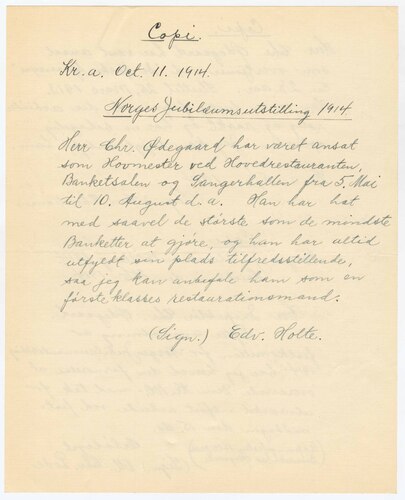 Copi.
Kr.a. Oct. 11. 1914.
Norges Jubilæumsutstilling 1914.
Herr Chr. Ødegaard har været ansat
som Hovmester ved Hovedrestauranten,
Banketsalen og Sangerhallen fra 5. Mai
til 10. August d.a. Han har hat
med saavel de største som de mindste
Banketter at gjøre, og han har altid
utfyldt sin plads tilfredsstillende,
saa jeg kan anbefale ham som en
første klasses restaurationsmand.
(Sign.) Edv. Holte.